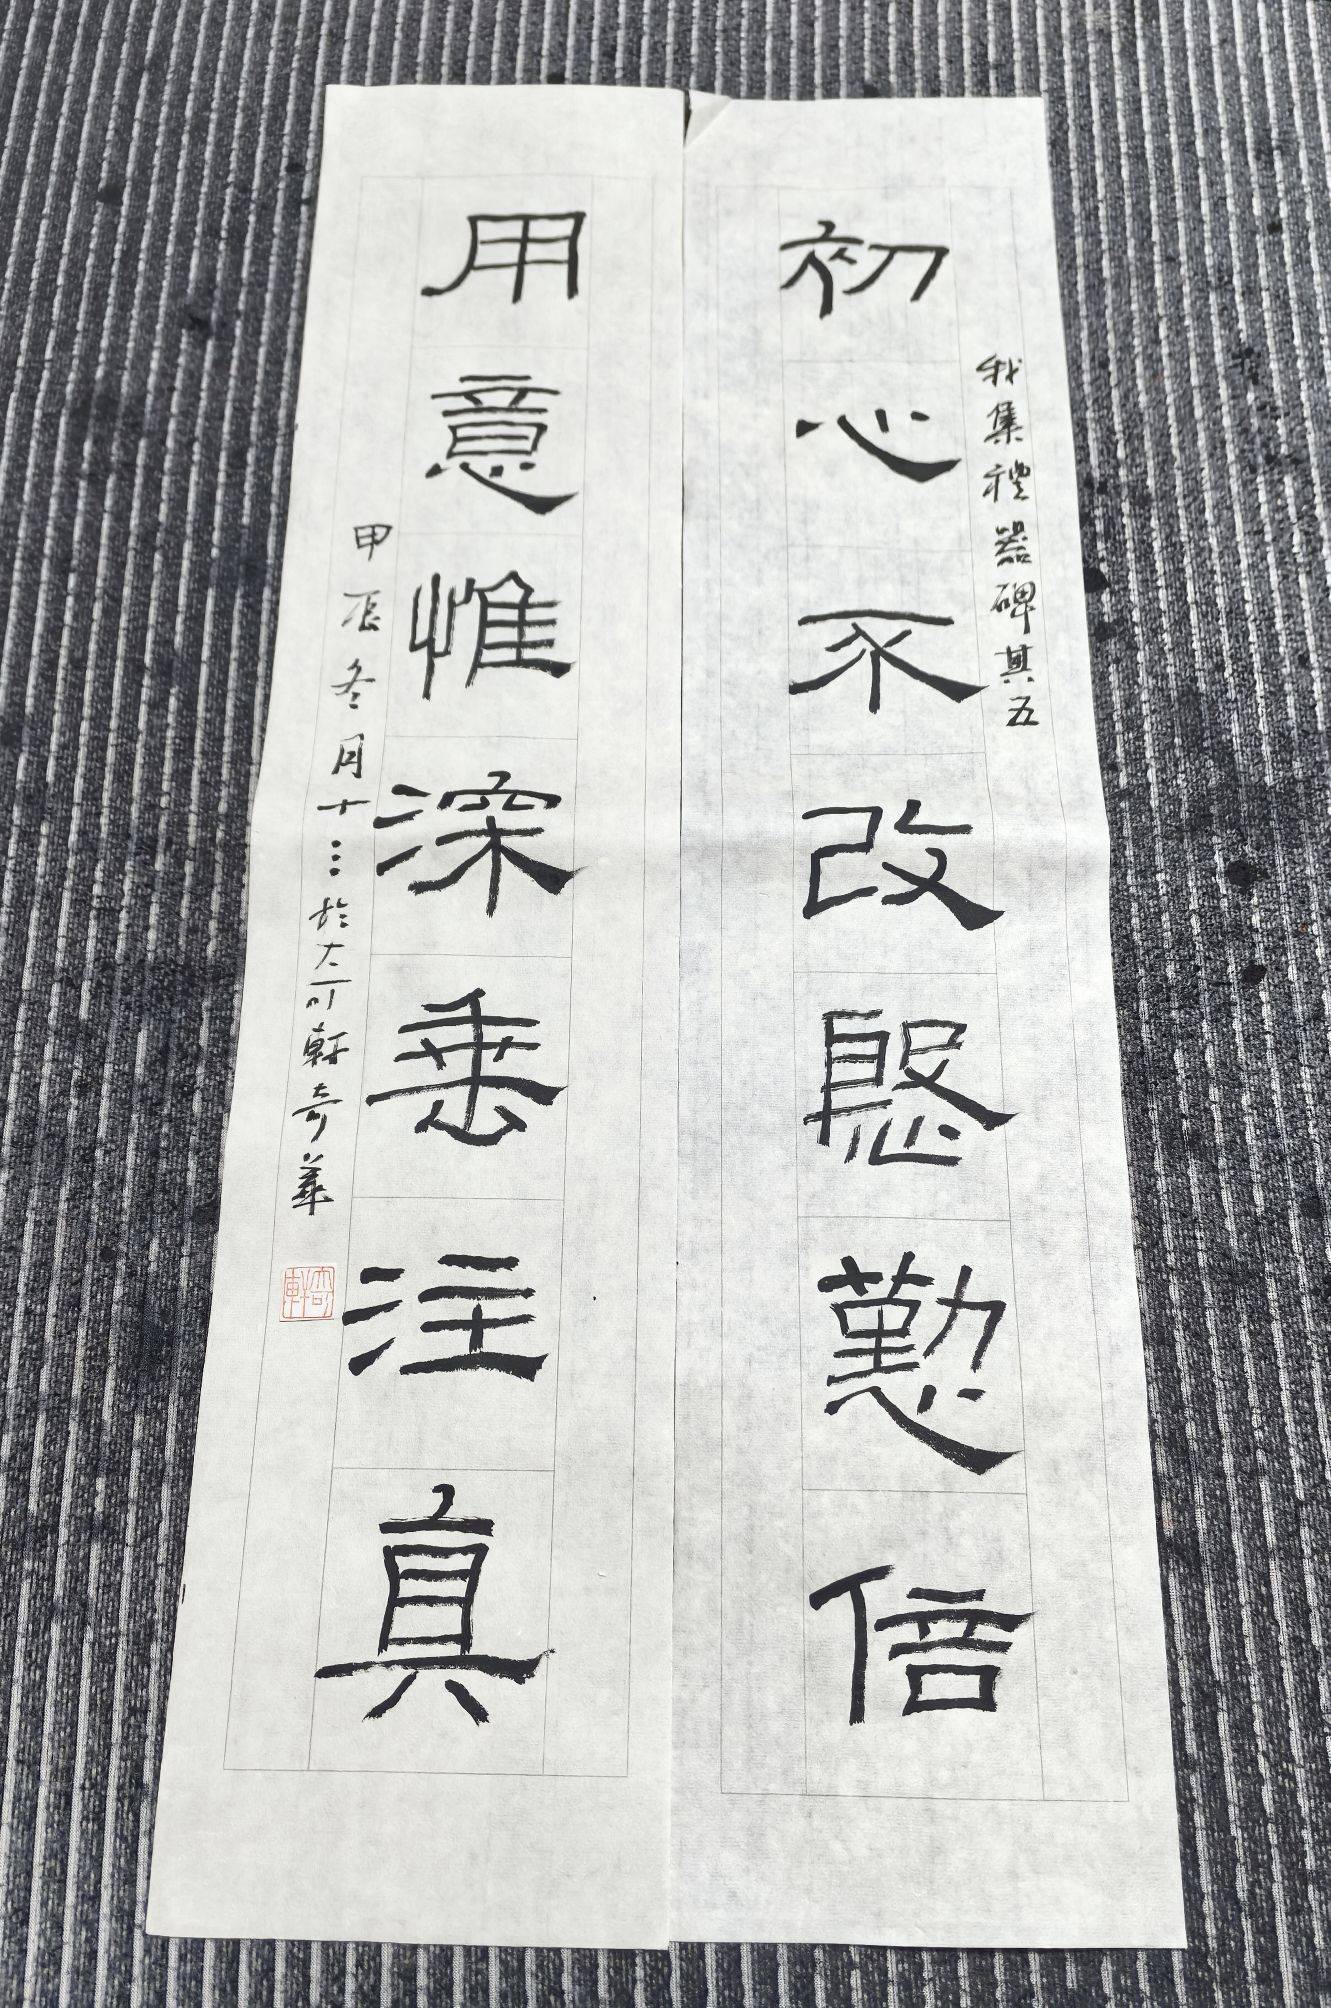 我集禮器碑其五
初心不改慇懃倍
用意惟深垂注真
甲辰冬月十三於大可軒奇華